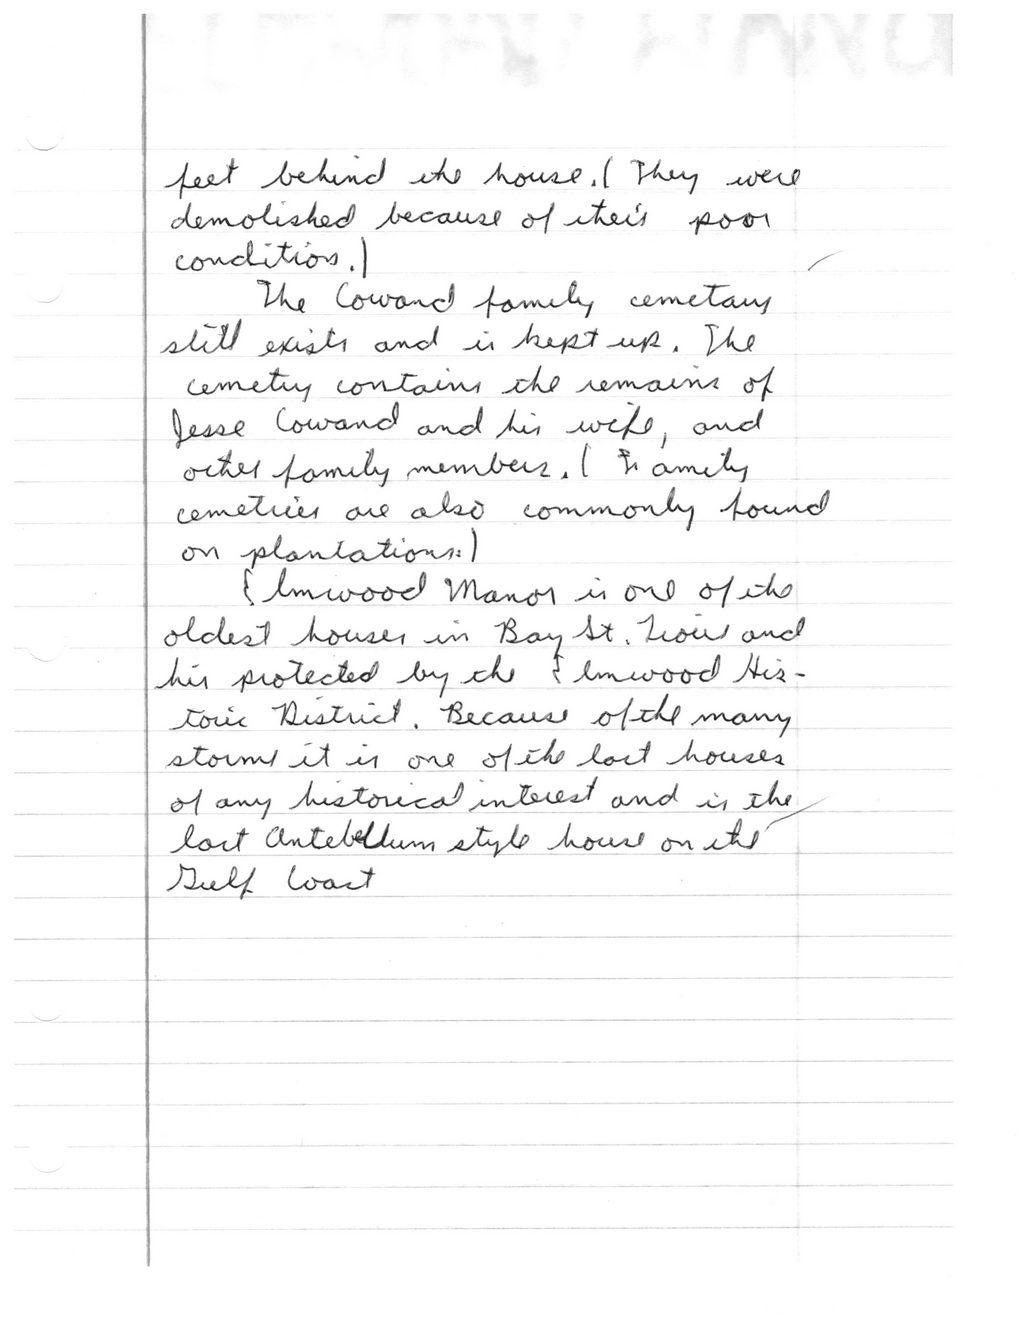 feet behind the house. (They were
demolished because of their poor
condition.)
The Cowand family cemetary
still exists and is kept up. The
cemetry contains the remains of
Jesse Cowand and his wife, and
other family members. (Family
cemetries are also commonly found
on plantations.)
Elmwood Manor is one of the
oldest houses in Bay St. Louis and
his protected by the Elmwood His-
toric District. Because of the many
storms it is one of the last houses
of any historical interest and is the
last Antebellum style house on the
Gulf Coast